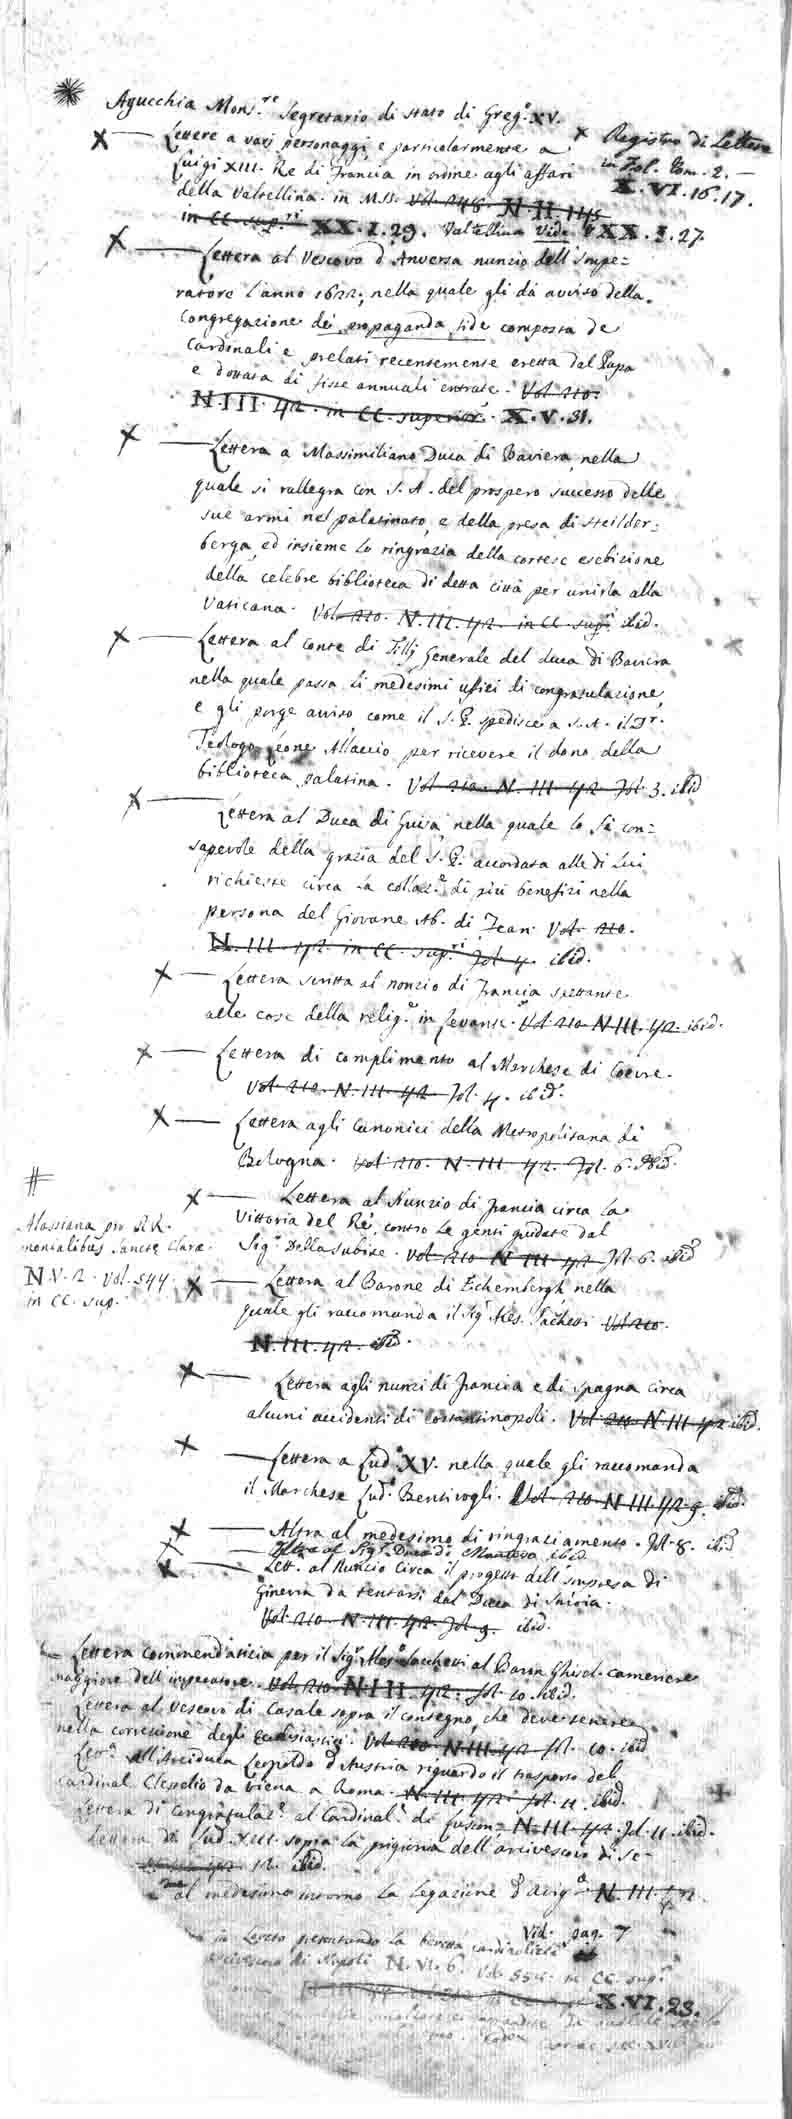 Agucchia Mons.re Segretario di stato di Greg.o XV.
Lettere a vari personaggi e particolarmente a
Luigi XIII. Re di Francia in ordine agli affari
della Valtellina. in MSS. Vol. 248. N. II. 145
in CC. sup.ri XX. I. 29. Valtellina Vide XX. I. 27.
Registro di Lettere
in Fol. Tom. 2. —
X. VI. 16. 17.
Lettera al Vescovo d'Anversa nunzio dell'Impe=
ratore l'anno 1622; nella quale gli dà avviso della
Congregazione de propaganda fide composta de
Cardinali e prelati recentemente eretta dal Papa
e dottata di fisse annuali entrate. Vol. 210.
N. III. 42. in CC. superior. X. V. 31.
Lettera a Massimiliano Duca di Baviera nella
quale si rallegra con S. A. del prospero successo delle
sue armi nel palatinato, e della presa di Heilder=
berga, ed insieme lo ringrazia della cortese esebizione
della celebre biblioteca di detta città per unirla alla
Vaticana. Vol. 210. N. III. 42. in CC. sup.ri ibid.
Lettera al conte di Tilly Generale del duca di Baviera
nella quale passa li medesimi uffici di congratulazione,
e gli porge avviso come il S. P. spedisce a S. A. il Dr.
Teologo Leone Allaccio per ricevere il dono della
biblioteca palatina. Vol. 210. N. III. 42. Fol. 3. ibid
Lettera al Duca di Guisa, nella quale lo fà con=
sapevole della grazia del S. P. accordata alle di Lui
richieste circa la collaz.e di più benefizi nella
persona del Giovane Ab. di Vol. 210.
N. III. 42. in CC. sup.ri Fol. 4. ibid.
Lettera scritta al nonzio di Francia spettante
alle cose della relig.e in Levante. Vol. 210. N. III. 42. ibid.
Lettera di complimento al Marchese di Coevre.
Vol. 210. N. III. 42. Fol. 4. ibid.
Lettera agli Canonici della Metropolitana di
Bologna. Vol. 210. N. III. 42. Fol. 6. ibid.
#
Alassiana pro RR.
monialibus Sancte Clarae
N. V. 2. Vol. 544.
in CC. sup.
Lettera al Nunzio di Francia circa la
Vittoria del Re, contro le genti guidate dal
Sig. Della Subise. Vol. 210. N. III. 42. Fol. 6. ibid
Lettera al Barone di Echembergh nella
quale gli raccomanda il Sig. Ales. Sachetti Vol. 210.
N. III. 42. ibid.
Lettera agli nunzi di Francia e di Spagna circa
alcuni accidenti di costantinopoli. Vol. 210. N. III. 42. ibid.
Lettera a Lud.o XV. nella quale gli raccomanda
il Marchese Lud.o Bentivogli. Vol. 210. N. III. 42. 9. ibid.
Altra al medesimo di ringraziamento. Fol. 8. ibid
Altra al Sig. Duca di Mantova ibid
Lett. al Nunzio circa il progetto dell'impresa di
Ginevra da tentarsi dal Duca di Savoia.
Vol. 210. N. III. 42. Fol. 9. ibid.
Lettera commendatizia per il Sig. Ales. Sacchetti al Baron Ghisel. cameriere
maggiore dell'imperatore. Vol. 210. N. III. 42. Fol. 10. ibid.
Lettera al Vescovo di Casale sopra il contegno, che deve tenere
nella correzione degli Ecclesiastici. Vol. 210. N. III. 42. Fol. 10. ibid
Lett.a all'Arciduca Leopoldo d'Austria riguardo il trasporto del
Cardinal Cleselio da Viena a Roma. N. III. 42. Fol. 11. ibid.
Lettera di Congratulaz.e al Cardinal di N. III. 42. Fol. 11. ibid.
Lettera di Lud. XIII. sopra la prigionia dell'arcivescovo di Se-
12. ibid.
al medesimo intorno la Legazione d'Avig.e N. III. 42.
Vid. pag. 7
in Loreto presentando la beretta cardinalizia
di Napoli N. VI. 6. Vol. 554. in CC. sup.ri
X. VI. 23.